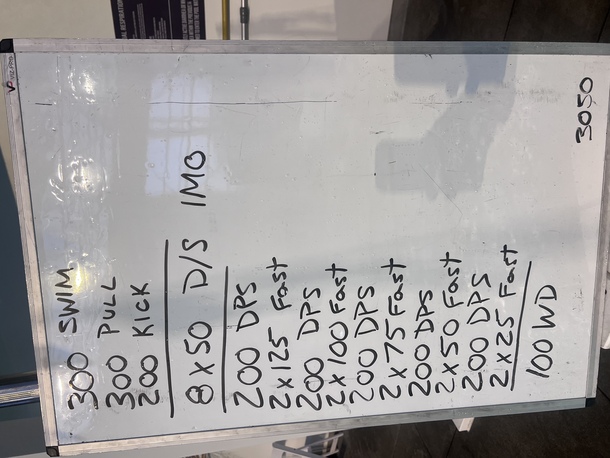 300 SWIM
300 PULL
200 KICK
8 x 50 D/S IMO
200 DPS
2 x 125 Fast
200 DPS
2 x 100 Fast
200 DPS
2 x 75 Fast
200 DPS
2 x 50 Fast
200 DPS
2 x 25 Fast
100 WD
3050